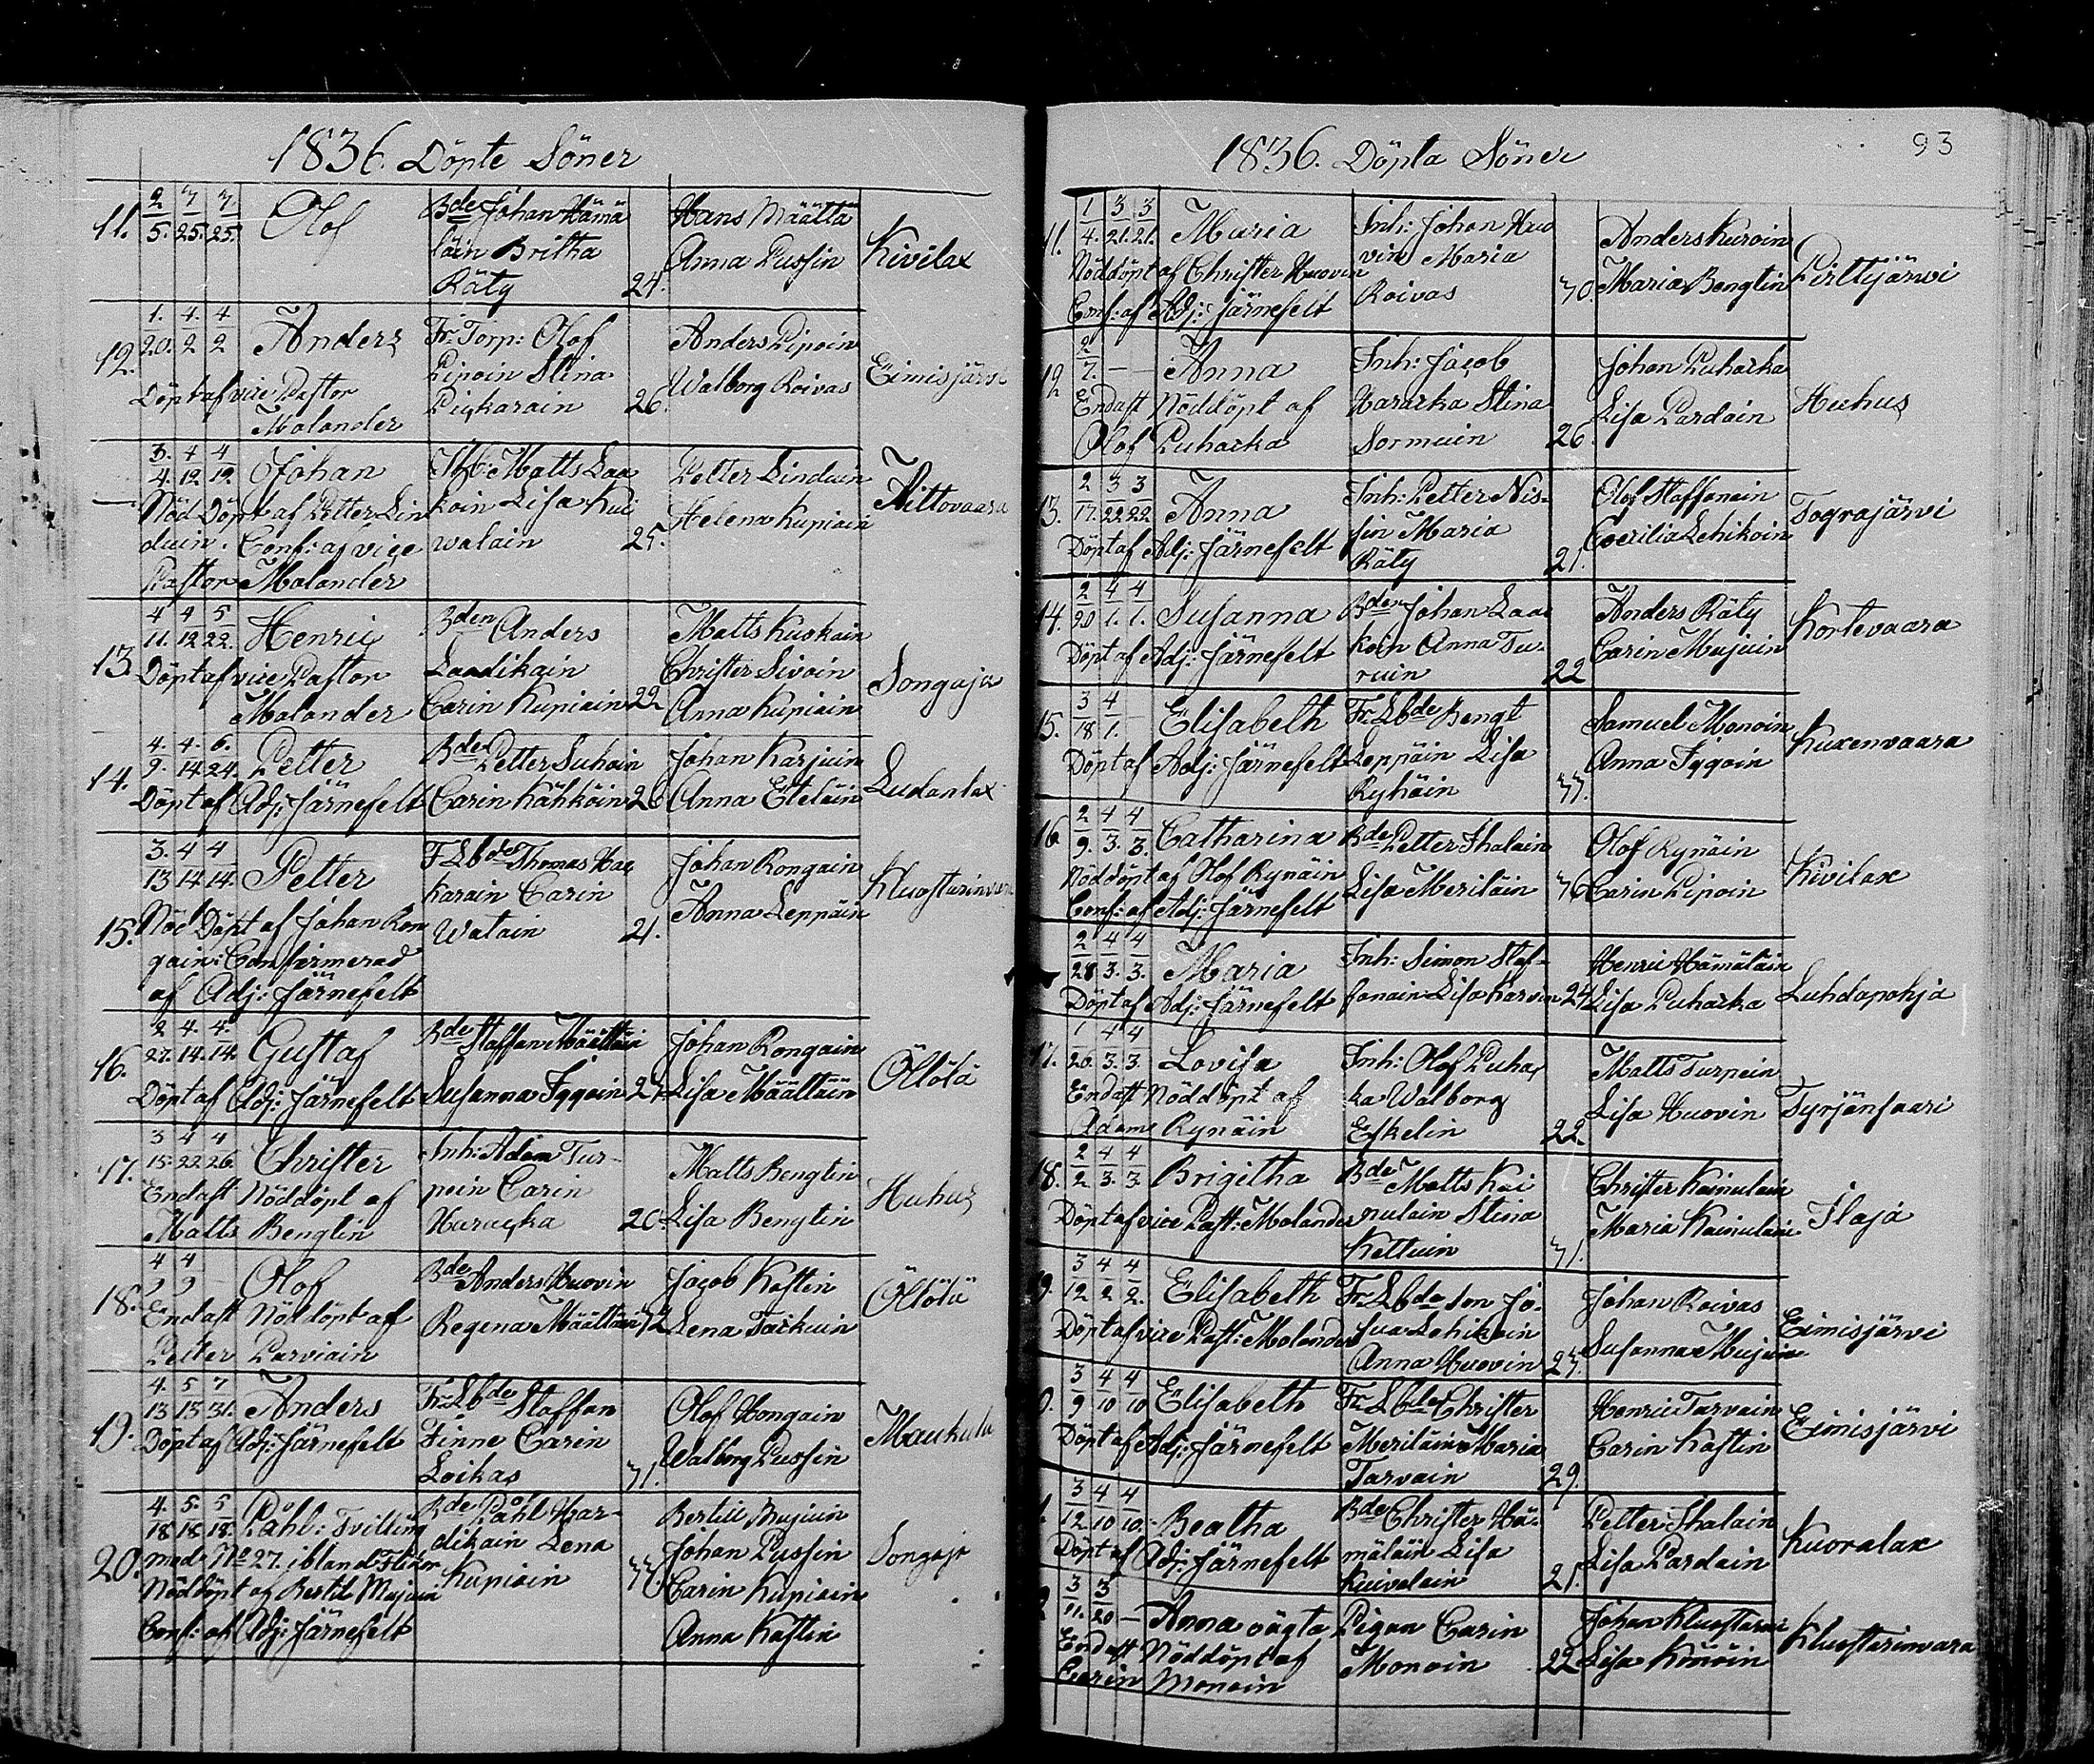 1836. Döpte Söner
11. 2/5. 7/25. 7/25. Olof Bde Johan Hämä Hans Määttä Kivilax
läin Britha Anna Pussin
Räty 24.
12. 1./20. 4./2 4/2 Anders Fr: Torp: Olof Anders Pipoin Eimisjärvi
Döpt af vice Pastor Pipoin Stina Walborg Roivas
Molander 26.
3./4. 4/12 4/12 Johan Matts Laa Petter Linduin
Nöd Döpt af Petter Lin koin Lisa Kui Helena Kupiain
duin. Conf: af vice walain 25.
Pastor Molander
13. 4/11. 4/12 5/22. Henric Bden Anders Matts Kuskain Songaja
Döpt af vice Pastor Laadikain Christer Sivoin
Molander Carin Kupiain 22 Anna Kupiain
14. 4./9. 4./14 6./24. Petter Bde Petter Suhoin Johan Karjuin Ludanlax
Döpt af Adj: Järnefelt Carin Kähköin 26 Anna Eteläin
15. 3./13 4/14 4/14. Petter F Lbde Thomas Johan Rongain
Nöd Döpt af Johan Ron karain Carin Anna Leppäin
gain: Confirmerad Watain 21.
af Adj: Järnefelt
16. 2/27. 4./14. 4./14. Gustaf Bde Staffan Määttäin Johan Rongain Öllölä
Döpt af Adj: Järnefelt Susanna Iggoin 27. Lisa Määttäin
17. 3/15. 4/22 4/26. Christer Inh: Adam Tur- Matts Bengtin Huhus
Endast Nöddöpt af pein Carin Lisa Bengtin
Matts Bengtin 20.
18. 4/9 4/9 Olof Bde Anders Huovin Jacob Kastin Öllölä
Endast Nöddöpt af Regena Määttäin 32 Lena Taikuin
Petter Parviain
19. 4./13 5/13 7/31. Anders Fr Lbde Staffan Olof Hongain Maukula
Döpt af Adj: Järnefelt Finne Carin Walborg Pussin
Loikas 31.
20. 4./18 5./18 5/18. Påhl: Tvilling Bde Påhl Kar- Bertill Mujuin Songaja
med No 27. ibland Flickor dikain Lena Johan Pussin
Nöddöpt af Bertil Mujuin Kupiain 37. Carin Kupiain
Conf: af Adj: Järnefelt Anna Kastin
1836. Döpta Söner
93
11. 1/4. 3/21. 3/21. Maria Inh: Johan Huo Anders Kuroin Pirttijärvi
Nöddöpt af Christer Huovin vin Maria Maria Bengtin
Conf: af Adj: Järnefelt Roivas 30.
12 2/7. Anna Inh: Jacob Johan Puhacka Huhus
Endast Nöddöpt af Hararka Stina Lisa Pardain
Olof Puhacka Sormuin 26.
13. 2/17. 3/22 3/22 Anna Inh: Petter Nis- Olof Staffanain Tograjärvi
Döpt af Adj: Järnefelt sin Maria Coecilia Lehikoin
Räty 21.
14. 2/20 4/1. 4/1. Susanna Bden Johan Laa Anders Räty Kortevaara
Döpt af Adj: Järnefelt koin Anna Tu- Carin Mujuin
ruin 22
15. 3/18 4/1. Elisabeth Fr Lbde Bengt Samuel Monoin Kuxenvaara
Döpt af Adj: Järnefelt Leppäin Lisa Anna Iggoin
Ryhäin 33.
16 2/9. 4/3. 4/3. Catharina Bde Petter Ihalain Olof Rynäin Kivilax
Nöddöpt af Olof Rynäin Lisa Meriläin 36 Carin Pipoin
Conf: af Adj: Järnefelt
2/28 4/3. 4/3. Maria Inh: Simon Staf- Henric Hämäläin Luhdapohja
Döpt af Adj: Järnefelt fanain Lisa Karvin 24 Lisa Puhacka
17. 1/20. 4/3. 4/3. Lovisa Inh: Olof Puhac Matts Turpein Tyrjänsaari
Endast Nöddöpt af ka Walborg Lisa Huovin
Adam Rynäin Eskelin 22.
18. 2/2 4/3. 4/3. Brigitha Bde Matts Kai Christer Kainulain Ilaja
Döpt af vice Past: Molander nulain Stina Maria Kainulain
Kettuin 31.
9. 3/12 4/2 4/2. Elisabeth Fr Lbde son Jo- Johan Roivas Eimisjärvi
Döpt af vice Past: Molander sua Lehikoin Susanna Mujuin
Anna Huovin 23.
0. 3/9 4/10 4/10 Elisabeth Fr Lbde Christer Henric Tarvain Eimisjärvi
Döpt af Adj: Järnefelt Meriläin Maria Carin Kastin
Tarvain 29.
3/12 4/10 4/10. Beatha Bde Christer Hä- Petter Ihalain Kuoralax
Döpt af Adj: Järnefelt mäläin Lisa Lisa Pardain
Kuivalain 21.
3/11. 3/20 Anna oägta Pigan Carin Johan Kluostarinvara
Endast Nöddöpt af Monoin 22 Lisa Könöin
Carin Monoin